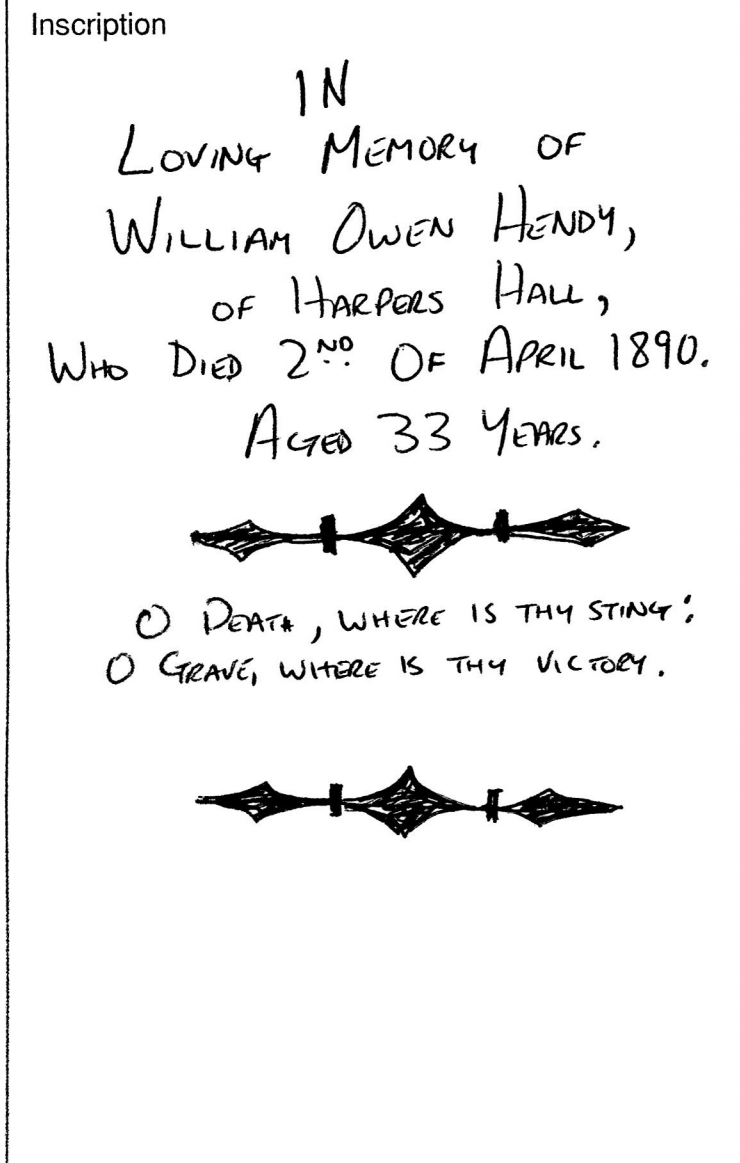 Inscription
IN
LOVING MEMORY OF
WILLIAM OWEN HENDY,
OF HARPERS HALL,
WHO DIED 2ND OF APRIL 1890.
AGED 33 YEARS.
O DEATH, WHERE IS THY STING:
O GRAVE, WHERE IS THY VICTORY.